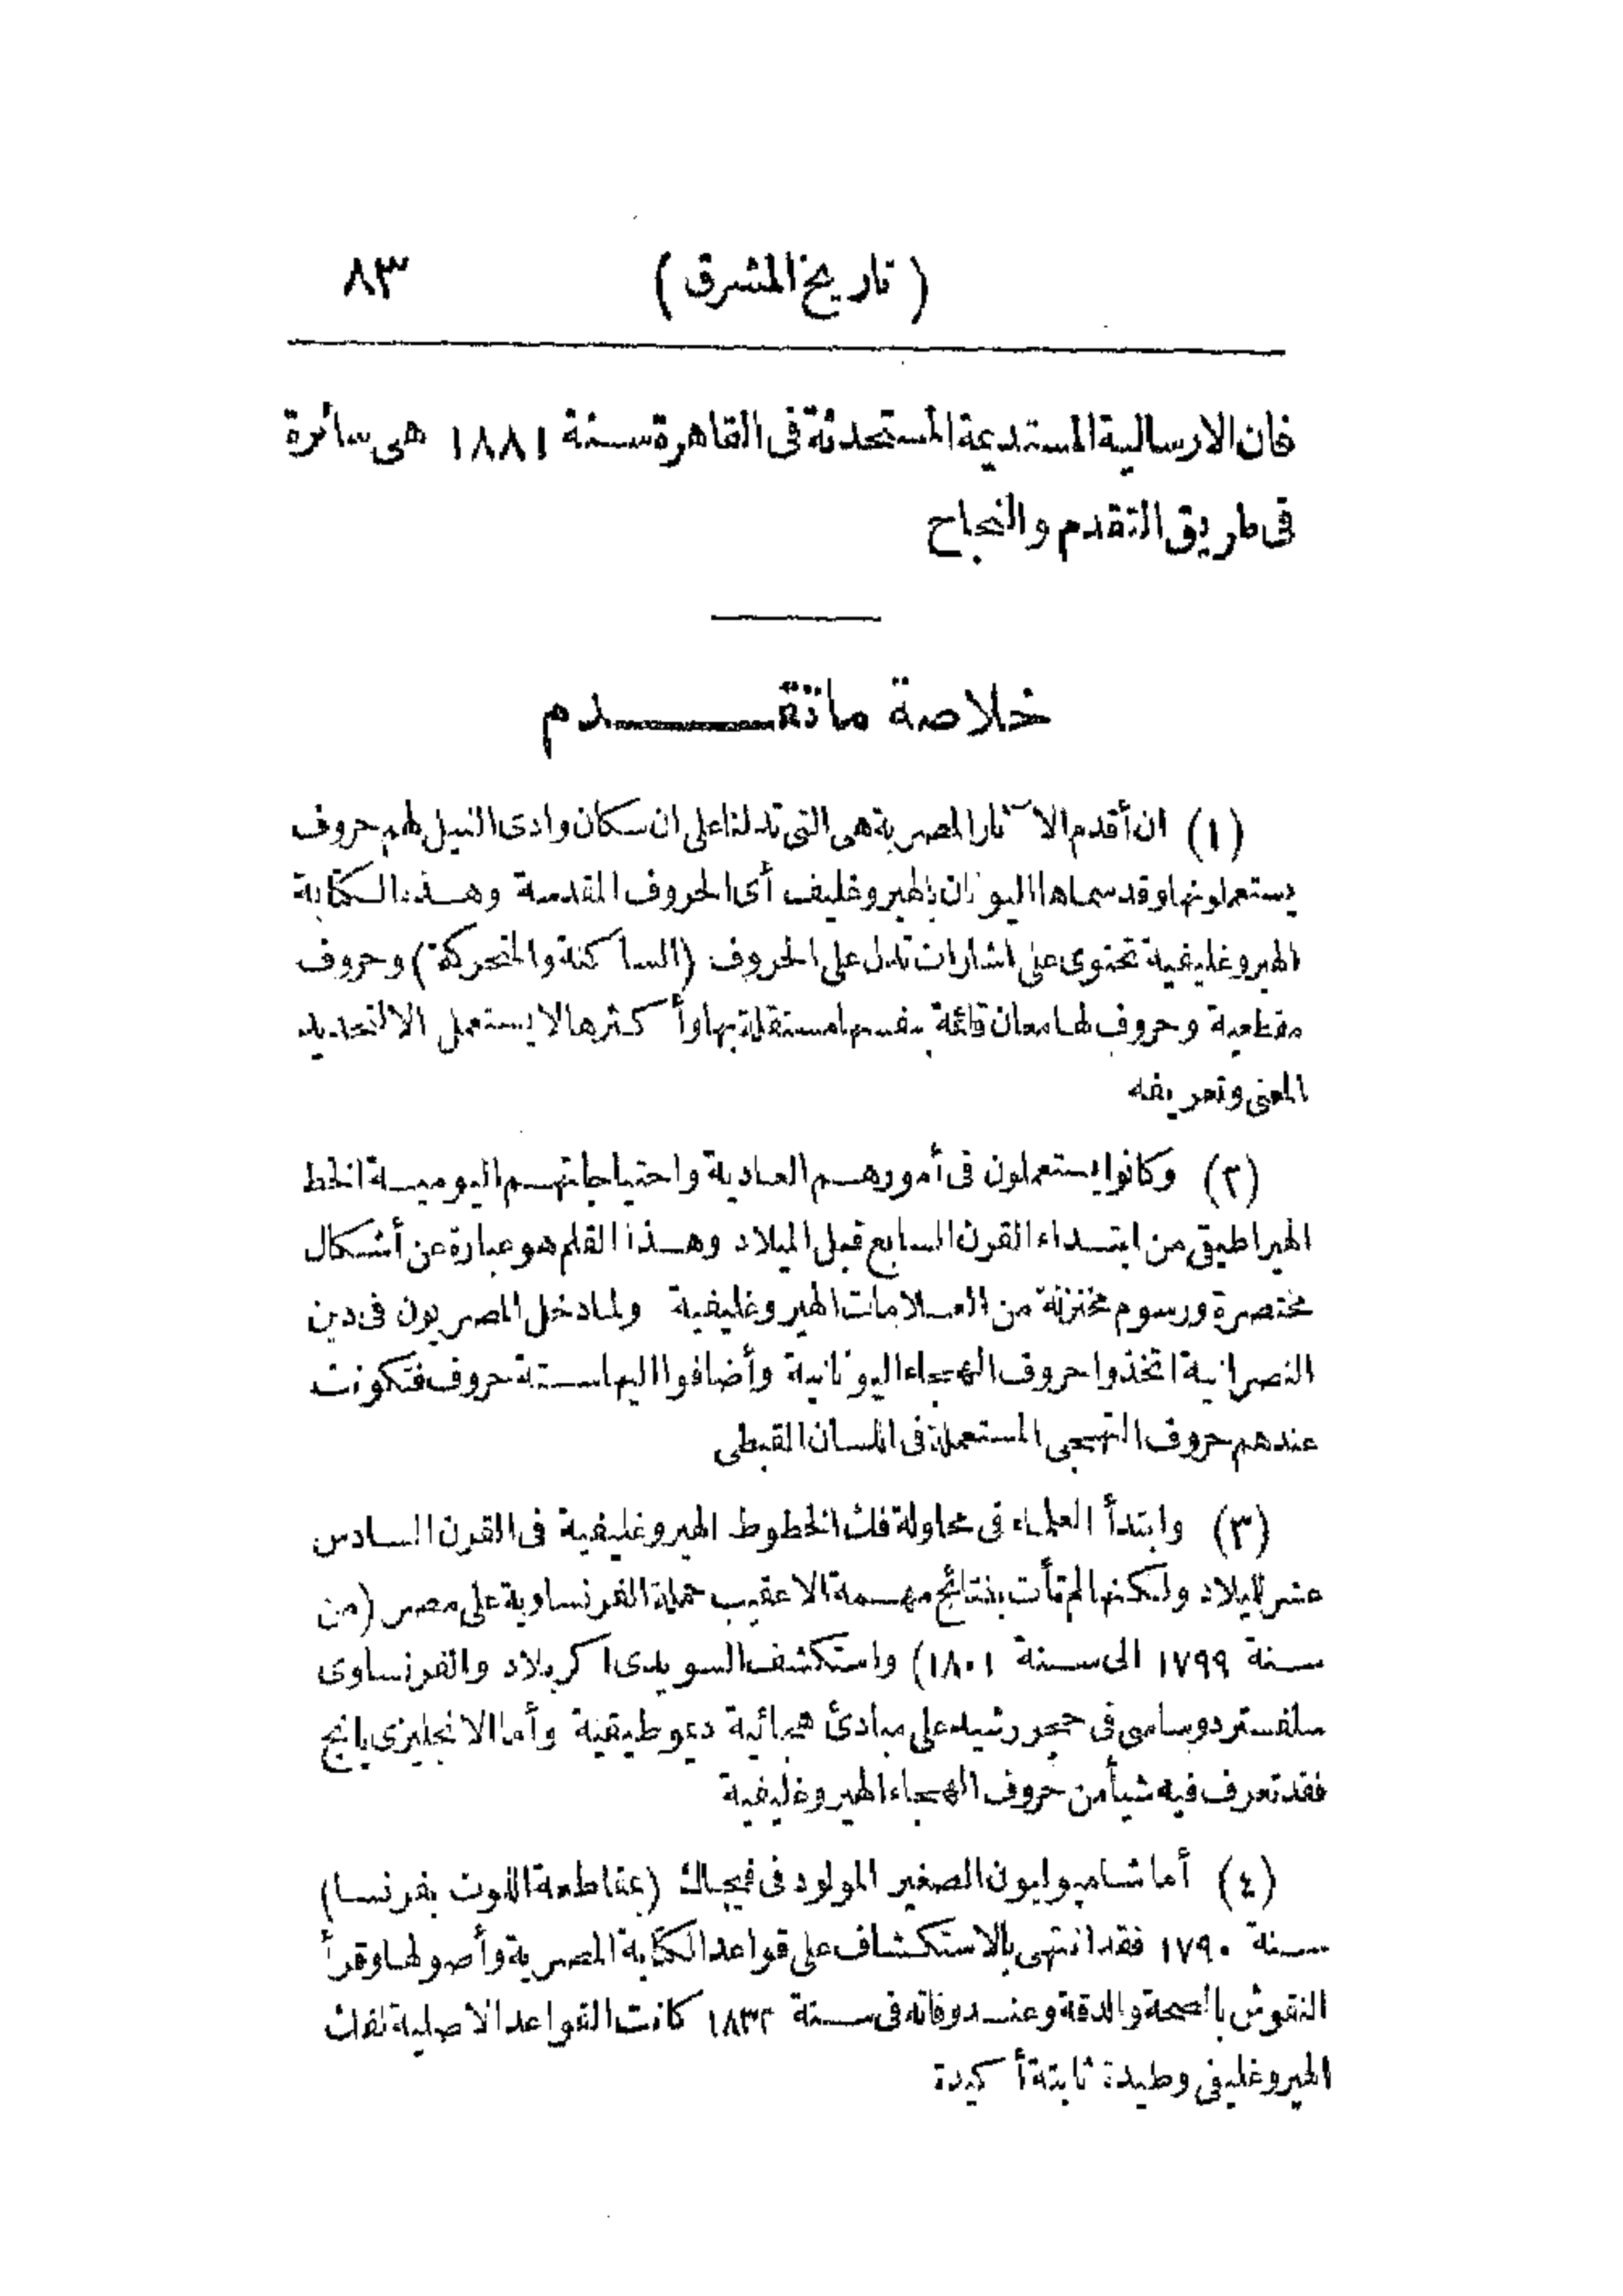 ( تاريخ المشرق ) ٨٣
فان الارسالية المستديمة المستحدثة فى القاهرة سنة ١٨٨١ هى سائرة
فى طريق التقدم والنجاح
خلاصة ما تقدم
(١) ان أقدم الآثار المصرية هى التى تدلنا على ان سكان وادى النيل لهم حروف
يستعملونها وقد سماها اليونان بالهيروغليف أى الحروف المقدسة وهذه الكتابة
الهيروغليفية تحتوى على اشارات تدل على الحروف (الساكنة والمتحركة) وحروف
مقطعية وحروف لها معان قائمة بنفسها مستقلة بها وأكثرها لا يستعمل الا لتحديد
المعنى وتعريفه
(٢) وكانوا يستعملون فى أمورهم العادية واحتياجاتهم اليومية الخط
الهيراطيقى من ابتداء القرن السابع قبل الميلاد وهذا القلم هو عبارة عن أشكال
مختصرة ورسوم مختزلة من العلامات الهيروغليفية ولما دخل المصريون فى دين
النصرانية اتخذوا حروف الهجاء اليونانية وأضافوا اليها ستة حروف فتكونت
عندهم حروف التهجى المستعملة فى اللسان القبطى
(٣) وابتدأ العلماء فى محاولة فك الخطوط الهيروغليفية فى القرن السادس
عشر للميلاد ولكنها لم تأت بنتائج مهمة الا عقيب حملة الفرنساوية على مصر (من
سنة ١٧٩٩ الى سنة ١٨٠١) واستكشف السويدى اكربلاد والفرنساوى
سلفستر دوساسى فى حجر رشيد على مبادئ هجائية ديموطيقية وأما الانجليزى يانج
فقد تعرف فيه شيأ من حروف الهجاء الهيروغليفية
(٤) أما شامپوليون الصغير المولود فى فيجاك (بمقاطعة اللوت بفرنسا)
سنة ١٧٩٠ فقد انتهى بالاستكشاف على قواعد الكتابة المصرية وأصولها وقرأ
النقوش بالصحة والدقة وعند وفاته فى سنة ١٨٣٢ كانت القواعد الاصلية لفك
الهيروغليفى وطيدة ثابتة أكيدة